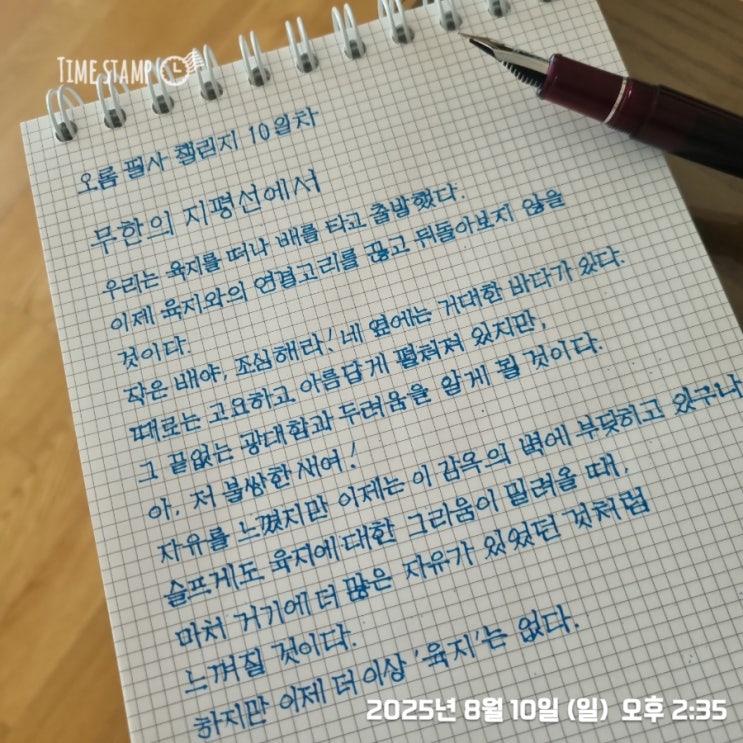 TIME STAMP
오롬 필사 챌린지 10일차
무한의 지평선에서
우리는 육지를 떠나 배를 타고 출발했다.
이제 육지와의 연결고리를 끊고 뒤돌아보지 않을
것이다.
작은 배야, 조심해라! 네 옆에는 거대한 바다가 있다.
때로는 고요하고 아름답게 펼쳐져 있지만,
그 끝없는 광대함과 두려움을 알게 될 것이다.
아, 저 불쌍한 새여!
자유를 느꼈지만 이제는 이 감옥의 벽에 부딪히고 있구나
슬프게도 육지에 대한 그리움이 밀려올 때,
마치 거기에 더 많은 자유가 있었던 것처럼
느껴질 것이다.
하지만 이제 더 이상 '육지'는 없다.
2025년 8월 10일 (일) 오후 2:35